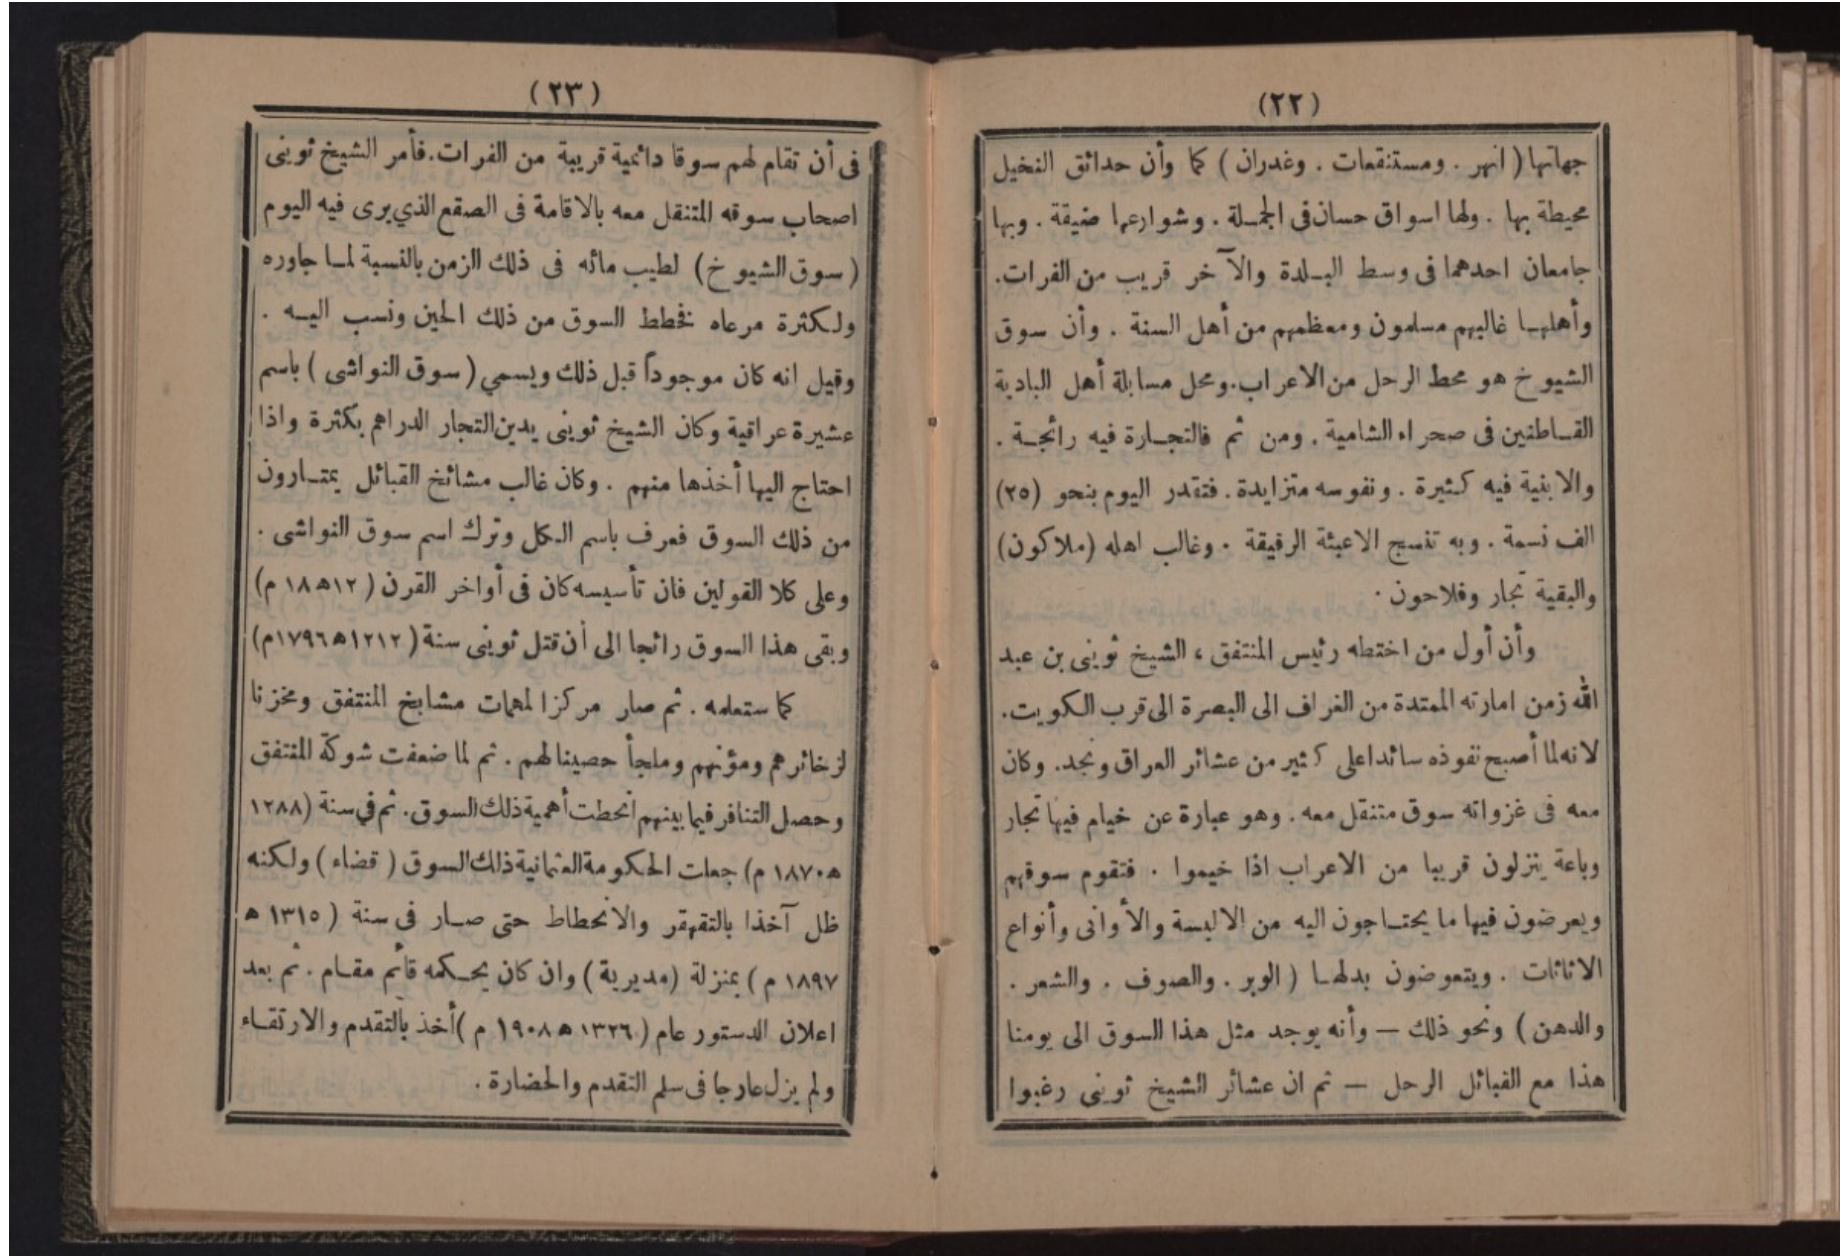 (٢٢)
جهاتها ( انهر . ومستنقعات . وغدران ) كما وأن حدائق النخيل
محيطة بها . ولها اسواق حسان في الجمـلة . وشوارعها ضيقة . وبها
جامعان احدهما في وسط البـلدة والآخر قريب من الفرات.
وأهلهـا غالبهم مسلمون ومعظمهم من أهل السنة . وأن سوق
الشيوخ هو محط الرحل من الاعراب.ومحل مسابلة أهل البادية
القـاطنين فى صحراء الشامية . ومن ثم فالتجـارة فيه رائجـة .
والابنية فيه كثيرة . ونفوسه متزايدة . فتقدر اليوم بنحو (٢٥)
الف نسمة . وبه تنسج الاعبئة الرفيقة . وغالب اهله (ملاكون)
والبقية تجار وفلاحون .
وأن أول من اختطه رئيس المنتفق ، الشيخ ثوينى بن عبد
الله زمن امارته الممتدة من الغراف الى البصرة الى قرب الكويت.
لانه لما أصبح نفوذه سائدا على كثير من عشائر العراق ونجد. وكان
معه فى غزواته سوق متنقل معه . وهو عبارة عن خيام فيها تجار
وباعة ينزلون قريبا من الاعراب اذا خيموا . فتقوم سوقهم
ويعرضون فيها ما يحتـاجون اليه من الالبسة والأوانى وأنواع
الاثاثات . ويتعوضون بدلهـا ( الوبر . والصوف . والشعر .
والدهن ) ونحو ذلك — وأنه يوجد مثل هذا السوق الى يومنا
هذا مع القبائل الرحل — ثم ان عشائر الشيخ ثوينى رغبوا
(٢٣)
فى أن تقام لهم سوقا دائمية قريبة من الفرات.فأمر الشيخ ثوينى
اصحاب سوقه المتنقل معه بالاقامة فى الصقع الذي يرى فيه اليوم
( سوق الشيوخ ) لطيب مائه فى ذلك الزمن بالنسبة لمـا جاوره
ولكثرة مرعاه فخطط السوق من ذلك الحين ونسب اليـه .
وقيل انه كان موجوداً قبل ذلك ويسمي ( سوق النواشى ) باسم
عشيرة عراقية وكان الشيخ ثوينى يدين التجار الدراهم بكثرة واذا
احتاج اليها أخذها منهم . وكان غالب مشائخ القبائل يمتـارون
من ذلك السوق فعرف باسم الكل وترك اسم سوق النواشى .
وعلى كلا القولين فان تأسيسه كان فى أواخر القرن ( ١٢ه ١٨ م)
وبقى هذا السوق رائجا الى أن قتل ثوينى سنة ( ١٢١٢ه ١٧٩٦م)
كما ستعلمه . ثم صار مركزا لمهمات مشايخ المنتفق ومخزنا
لزخائرهم ومؤنهم وملجأ حصينا لهم . ثم لما ضعفت شوكة المنتفق
وحصل التنافر فيما بينهم انحطت أهمية ذلك السوق. ثم في سنة (١٢٨٨
ه ١٨٧٠ م) جعلت الحكومة العثمانية ذلك السوق ( قضاء ) ولكنه
ظل آخذا بالتقهقر والانحطاط حتى صـار فى سنة ( ١٣١٥ ه
١٨٩٧ م ) بمنزلة (مديرية) وان كان يحـكمه قائم مقـام . ثم بعد
اعلان الدستور عام ( ١٣٢٦ ه ١٩٠٨ م )أخذ بالتقدم والارتقـاء
ولم يزل عارجا فى سلم التقدم والحضارة .